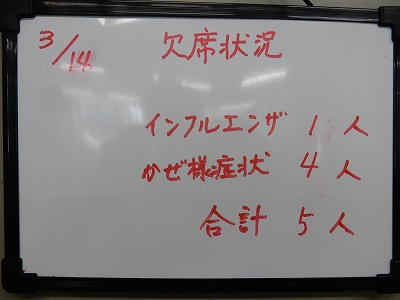 3/14 欠席状況
インフルエンザ 1人
かぜ様症状 4人
合計 5人